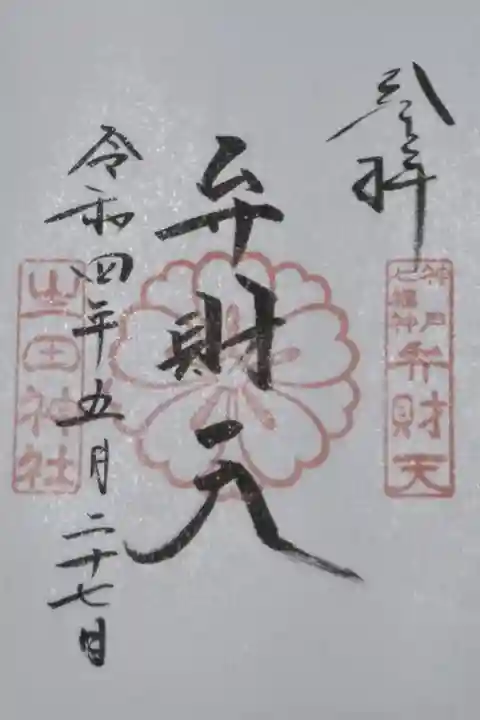 奉拝
神戸七福神
弁財天
弁財天
令和四年五月二十七日
生田神社